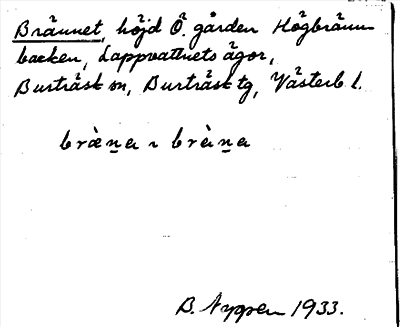 Brännet, höjd Ö. gården Högbränn-
backen, Lappvattnets ägor,
Burträsk sn, Burträsk tg, Västerb. l.
bræ̀n̲a ~ brèn̲a
B. Nygren 1933.